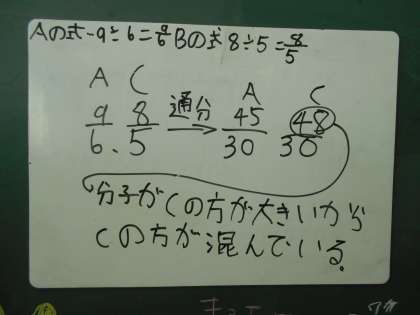 Aの式-9÷6=9/6 Bの式 8÷5=8/5
A C A C
9/6 . 8/5 通分→ 45/30 48/30
分子がCの方が大きいから
Cの方が混んでいる。